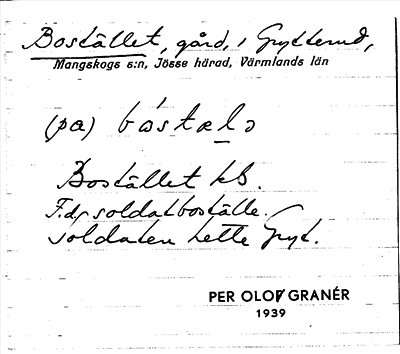 Bostället, gård, i Grytterud,
Mangskogs s:n, Jösse härad, Värmlands län
(pæ) bɷstælə
Bostället kb.
F.d. soldatboställe.
Soldaten hette Gryt.
PER OLOF GRANÉR
1939